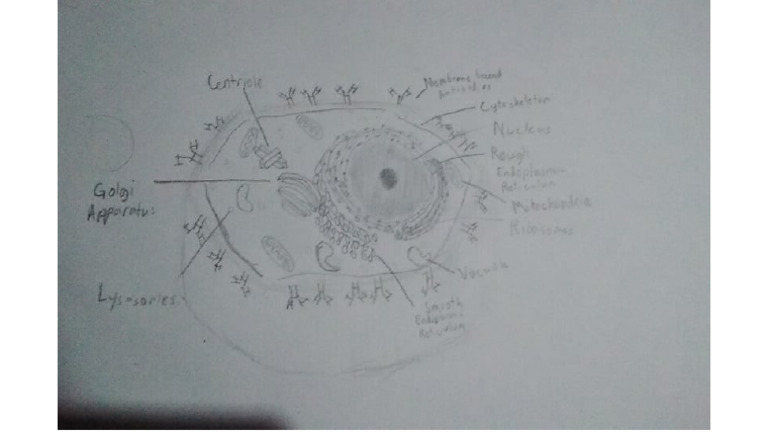 Centriole
Membrane bound
Cytoskeleton
Nucleus
Rough
Endoplasmic
Reticulum
Golgi
Apparatus
Mitochondria
Ribosomes
Vacuole
Lysosomes
Smooth
Endoplasmic
Reticulum